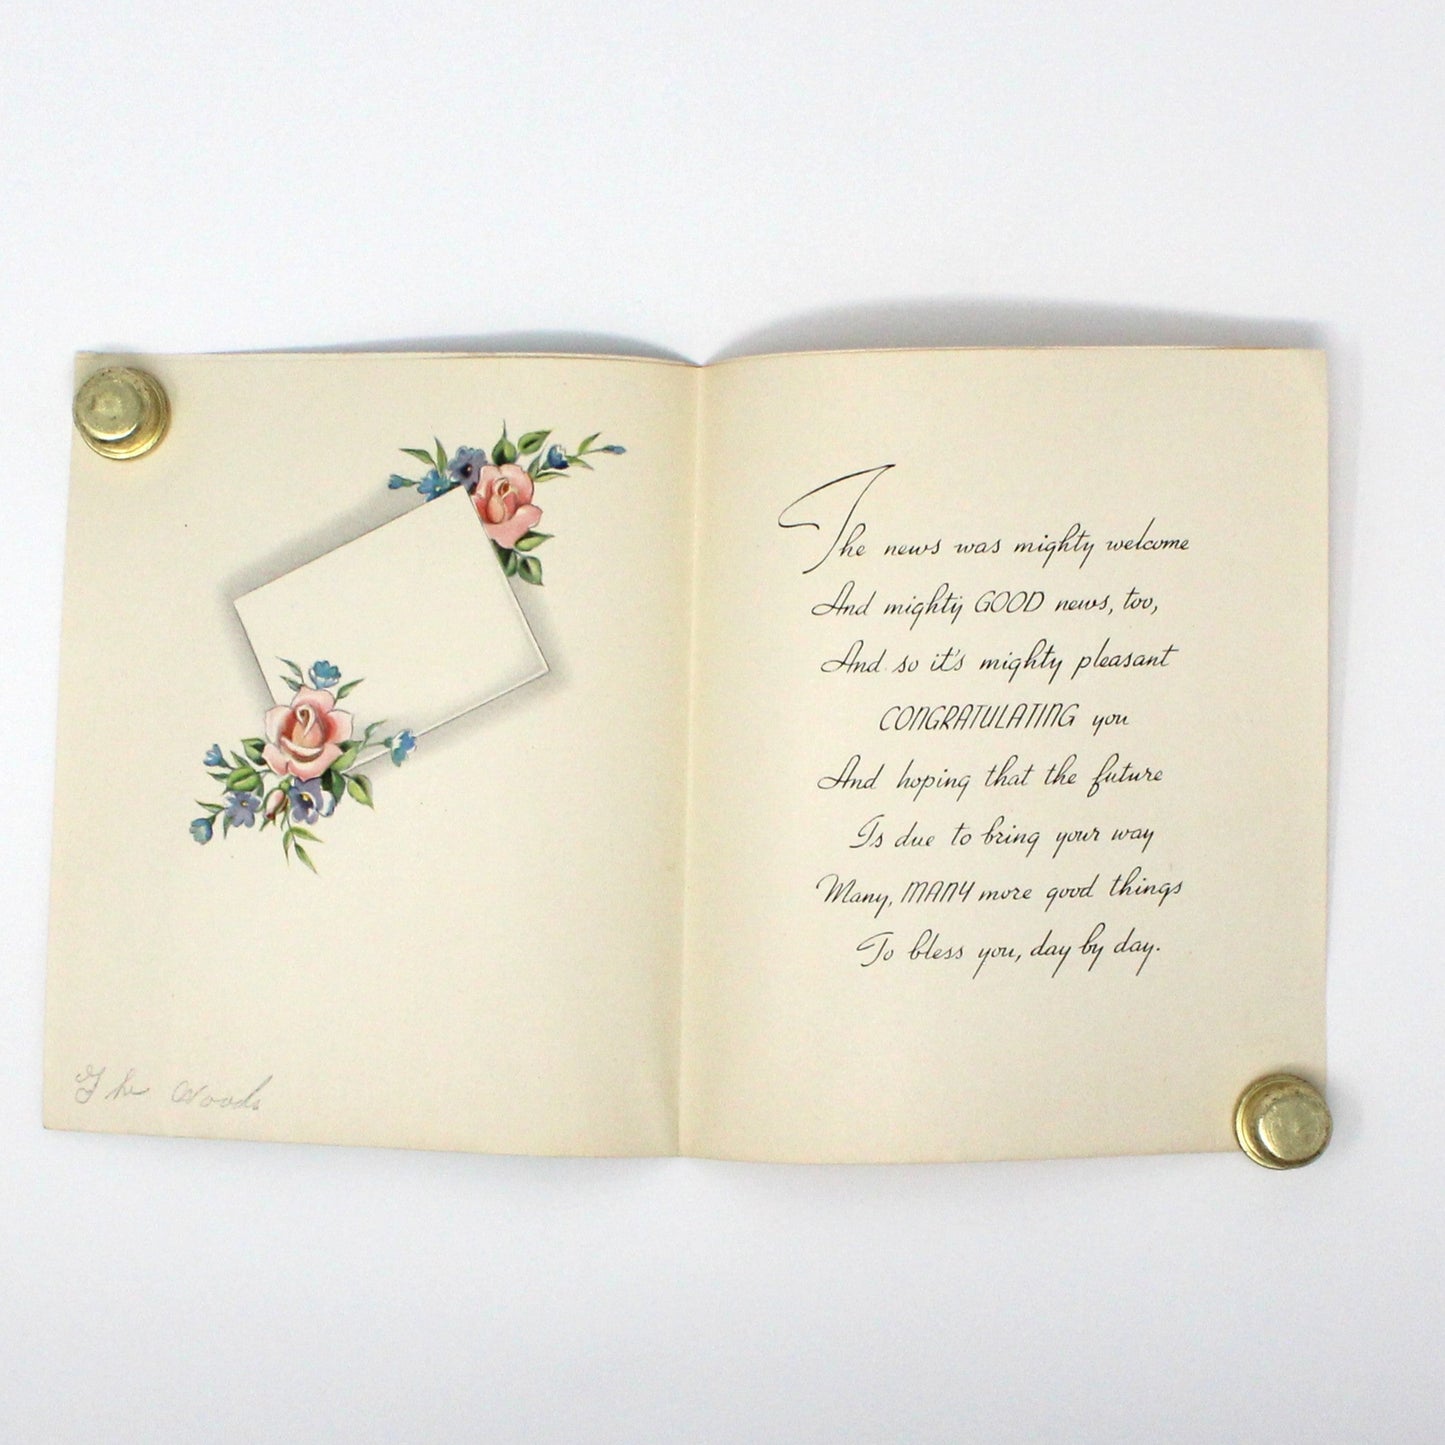 The Woods
The news was mighty welcome
And mighty GOOD news, too,
And so it's mighty pleasant
CONGRATULATING you
And hoping that the future
Is due to bring your way
Many, MANY more good things
To bless you, day by day.